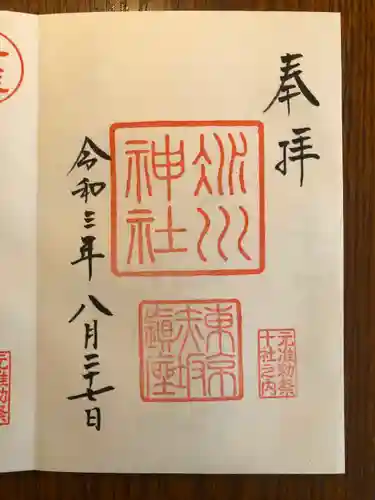 奉拝
氷川
神社
東京
赤坂
鎮座
元准勅祭
十社之内
令和三年 八月二十七日
元准勅祭